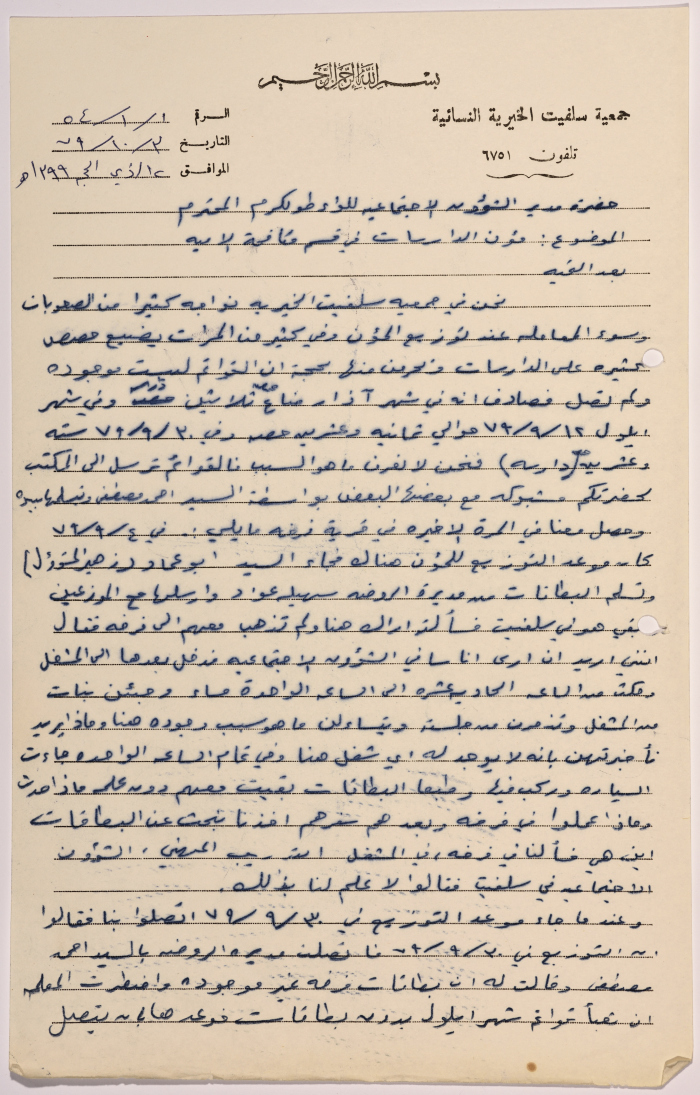 بسم الله الرحمن الرحيم
جمعية سلفيت الخيرية النسائية
تلفون ٦٧٥١
الرقم ٥٤/١/١
التاريخ ٧٩/١٠/٣
الموافق ١٢/ذي الحجة ١٣٩٩هـ
حضرة مدير الشؤون الاجتماعية للواء طولكرم المحترم
الموضوع : مؤن الدارسات في قسم مكافحة الامية
بعد التحية
نحن في جمعية سلفيت الخيرية نواجه كثيرا من الصعوبات
وسوء المعاملة عند توزيع المؤن وفي كثير من المرات يضيع حصص
كثيره على الدارسات وتحرمن منها بحجة ان القوائم ليست موجوده
ولم تصل فصادف انه في شهر آذار ضاع حصة ثلاثين وفي شهر
ايلول ٧٩/٩/١٢ حوالي ثمانيه وعشرين حصه وفي ٧٩/٩/٣٠ سته
وعشرين (دارسه) فنحن لا نعرف ما هو السبب فالقوائم ترسل الى المكتب
لحضرتكم مشبوكه مع بعضها البعض بواسطة السيد احمد مصطفى ونسلمها بيده
وحصل معنا في المرة الاخيره في قرية فرخه ما يلي : في ٧٩/٩/٤
كان موعد التوزيع للمؤن هناك فجاء السيد ابو عماد (زهير المسؤول)
وتسلم البطاقات من مديرة الروضه سهيله عواد وارسلها مع الموزعين
بقي هو في سلفيت فسألته اراك هنا ولم تذهب معهم الى فرخه فقال
انني اريد ان ارى اناسا في الشؤون الاجتماعيه فدخل بعدها الى المشغل
ومكث من الساعه الحاديه عشره الى الساعه الواحدة مساء وجئن بنات
من المشغل وتذمرن من جلسته ويتساءلن ما هو سبب وجوده هنا وماذا يريد
فأخبرتهن بانه لا يوجد له اي شغل هنا وفي تمام الساعه الواحده جاءت
السياره وركب فيها وطبعا البطاقات بقيت معهم دون علمه ماذا حدث
وماذا عملوا في فرخه وبعد سفرهم اخذنا نبحث عن البطاقات
اين هي فسألنا في فرخه ، في المشغل ، التدريب المهني ، الشؤون
الاجتماعيه في سلفيت فقالوا لا علم لنا بذلك .
وعند ما جاء موعد التوزيع في ٧٩/٩/٣٠ اتصلوا بنا فقالوا
ان التوزيع في ٧٩/٩/٣٠ فاتصلت مديره الروضه بالسيد احمد
مصطفى وقالت له ان بطاقات فرخه غير موجوده واضطرت المعلمه
ان تعبأ قوائم شهر ايلول بدون بطاقات فوعدها بان يتصل